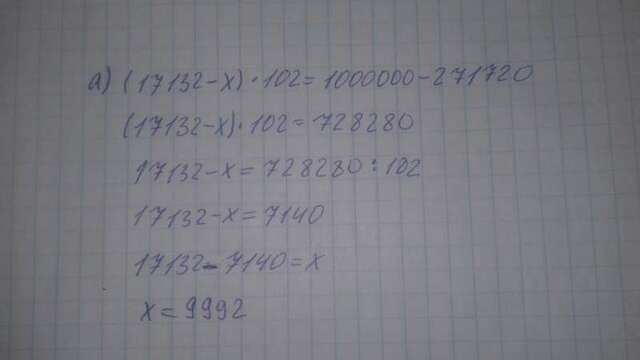 а) (17132-x)·102=1000000-271720
(17132-x)·102=728280
17132-x=728280:102
17132-x=7140
17132-7140=x
x=9992